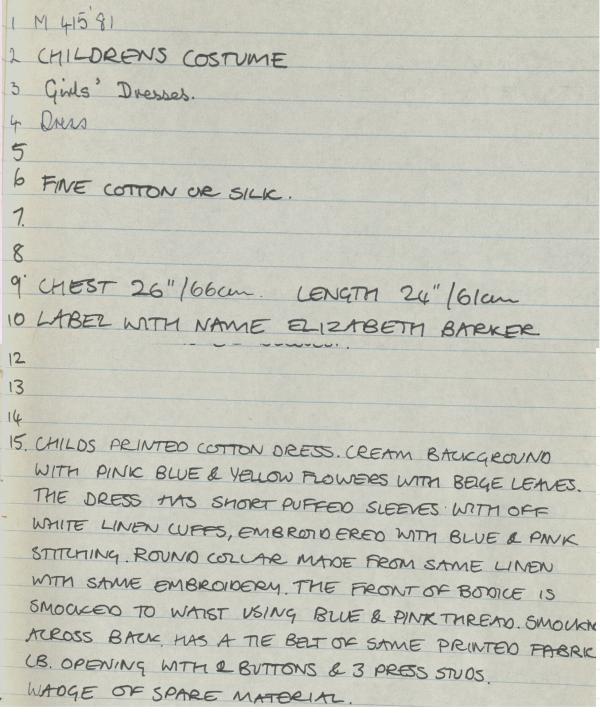 1 M 415'81
2 CHILDRENS COSTUME
3 Girls' Dresses.
4 Dress
5
6 FINE COTTON OR SILK.
7.
8
9 CHEST 26"/66cm. LENGTH 24"/61cm
10 LABEL WITH NAME ELIZABETH BARKER
12
13
14
15. CHILDS PRINTED COTTON DRESS. CREAM BACKGROUND
WITH PINK BLUE & YELLOW FLOWERS WITH BEIGE LEAVES.
THE DRESS HAS SHORT PUFFED SLEEVES WITH OFF
WHITE LINEN CUFFS, EMBROIDERED WITH BLUE & PINK
STITCHING. ROUND COLLAR MADE FROM SAME LINEN
WITH SAME EMBROIDERY. THE FRONT OF BODICE IS
SMOCKED TO WAIST USING BLUE & PINK THREAD.
ACROSS BACK. HAS A TIE BELT OF SAME PRINTED FABRIC
CB. OPENING WITH 2 BUTTONS & 3 PRESS STUDS.
WADGE OF SPARE MATERIAL.